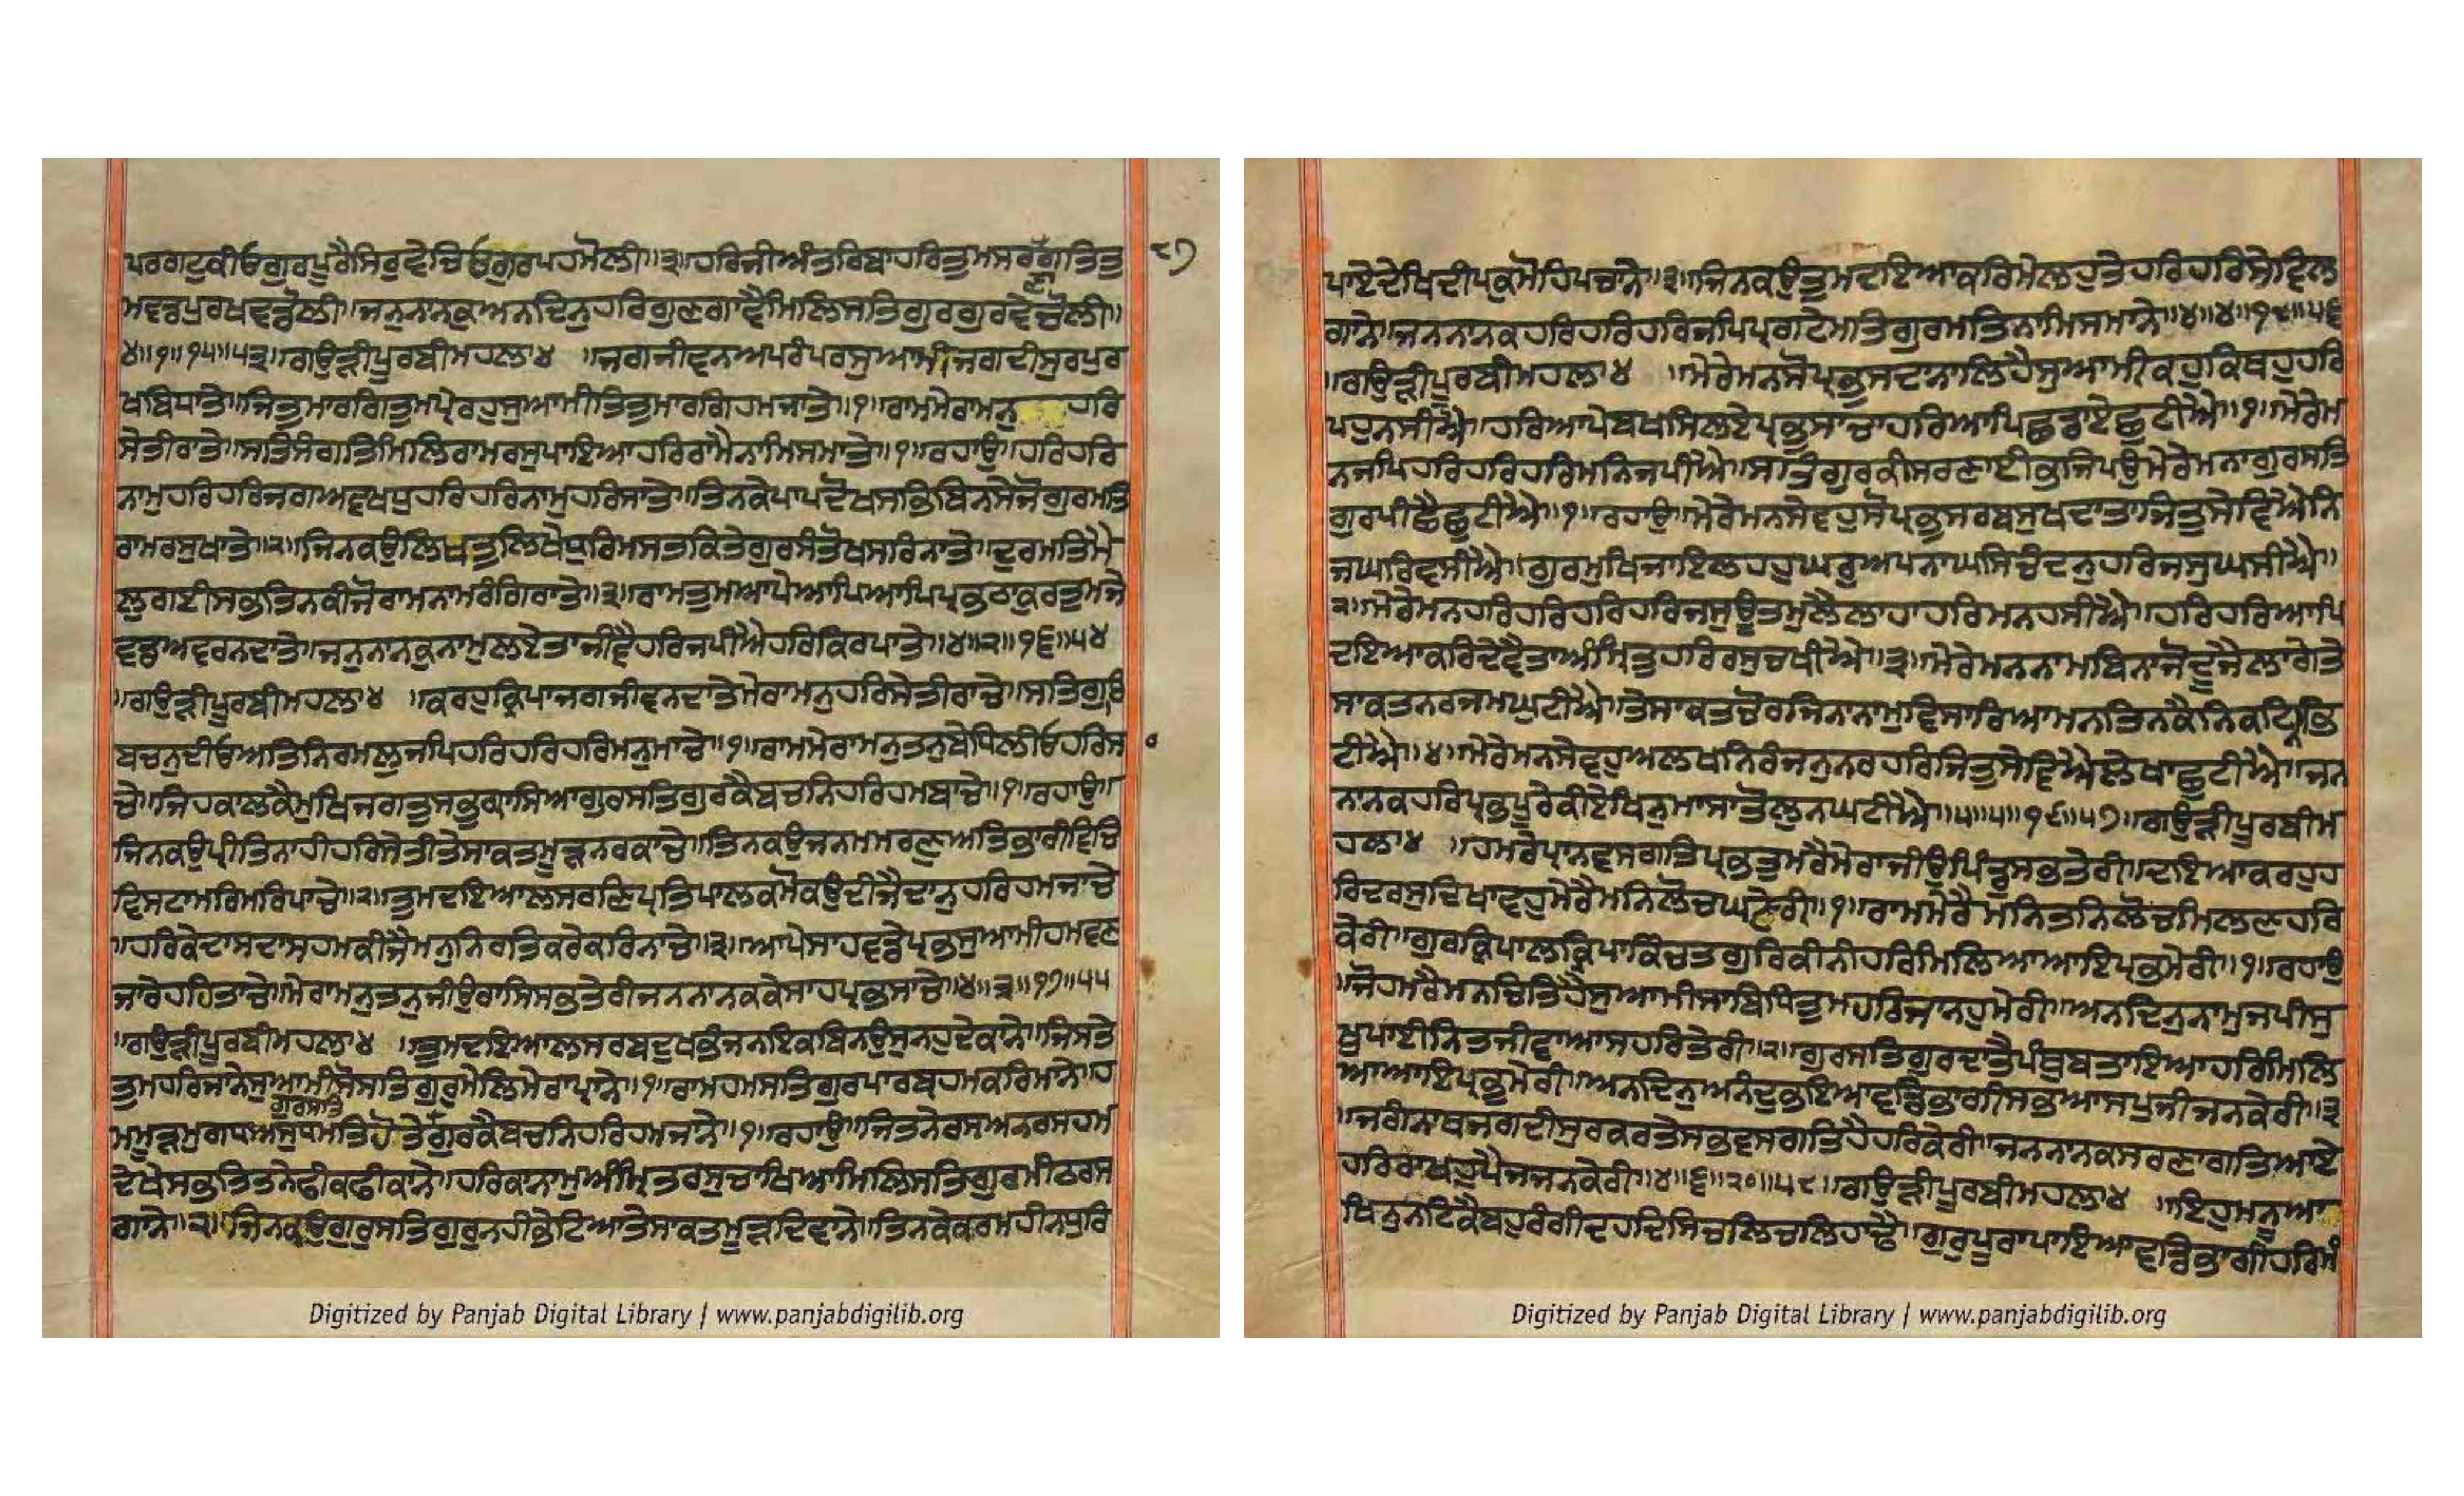 ਪਰਗਟੁਕੀਓਗੁਰਪੂਰੈਸਿਰੁਵੇਚਿਓਗੁਰਪਹਮੋਲੀ॥੩॥ਹਰਿਜੀਅੰਤਰਿਬਾਹਰਿਤੁਮਸਰਣਾਗਤਿਤੁ
ਮਵਡਪੁਰਖਵਡੋਲੀ॥ਜਨੁਨਾਨਕੁਅਨਦਿਨੁਹਰਿਗੁਣਗਾਵੈਮਿਲਿਸਤਿਗੁਰਗੁਰਵੇਚੋਲੀ॥
੪॥੧॥੧੫॥੫੩॥ਗਉੜੀਪੂਰਬੀਮਹਲਾ੪ ॥ਜਗਜੀਵਨਅਪਰੰਪਰਸੁਆਮੀਜਗਦੀਸੁਰਪੁਰ
ਖਬਿਧਾਤੇ॥ਜਿਤੁਮਾਰਗਿਤੁਮਪ੍ਰੇਰਹੁਸੁਆਮੀਤਿਤੁਮਾਰਗਿਹਮਜਾਤੇ॥੧॥ਰਾਮਮੇਰਾਮਨੁ ਹਰਿ
ਸੇਤੀਰਾਤੇ॥ਸਤਿਸੰਗਤਿਮਿਲਿਰਾਮਰਸੁਪਾਇਆਹਰਿਰਾਮੈਨਾਮਿਸਮਾਤੇ॥੧॥ਰਹਾਉ॥ਹਰਿਹਰਿ
ਨਾਮੁਹਰਿਹਰਿਜਗਅਵਖਧੁਹਰਿਹਰਿਨਾਮੁਹਰਿਸਾਤੇ॥ਤਿਨਕੇਪਾਪਦੋਖਸਭਿਬਿਨਸੇਜੋਗੁਰਮਤਿ
ਰਾਮਰਸੁਖਾਤੇ॥੨॥ਜਿਨਕਉਲਿਖਤੁਲਿਖੇਧੁਰਿਮਸਤਕਿਤੇਗੁਰਸੰਤੋਖਸਰਿਨਾਤੇ॥ਦੁਰਮਤਿਮੈ
ਲੁਗਈਸਭਤਿਨਕੀਜੋਰਾਮਨਾਮਰੰਗਿਰਾਤੇ॥੩॥ਰਾਮਤੁਮਆਪੇਆਪਿਆਪਿਪ੍ਰਭਠਾਕੁਰਤੁਮਜੇ
ਵਡਅਵਰਨਦਾਤੇ॥ਜਨੁਨਾਨਕੁਨਾਮੁਲਏਤਾਜੀਵੈਹਰਿਜਪੀਐਹਰਿਕਿਰਪਾਤੇ॥੪॥੨॥੧੬॥੫੪
॥ਗਉੜੀਪੂਰਬੀਮਹਲਾ੪ ॥ਕਰਹੁਕ੍ਰਿਪਾਜਗਜੀਵਨਦਾਤੇਮੇਰਾਮਨੁਹਰਿਸੇਤੀਰਾਚੇ॥ਸਤਿਗੁਰਿ
ਬਚਨੁਦੀਓਅਤਿਨਿਰਮਲੁਜਪਿਹਰਿਹਰਿਹਰਿਮਨੁਮਾਚੇ॥੧॥ਰਾਮਮੇਰਾਮਨੁਤਨੁਬੇਧਿਲੀਓਹਰਿਸਾ
ਚੇ॥ਜਿਹਕਾਲਕੈਮੁਖਿਜਗਤੁਸਭੁਗ੍ਰਸਿਆਗੁਰਸਤਿਗੁਰਕੈਬਚਨਿਹਰਿਹਮਬਾਚੇ॥੧॥ਰਹਾਉ॥
ਜਿਨਕਉਪ੍ਰੀਤਿਨਾਹੀਹਰਿਸੇਤੀਤੇਸਾਕਤਮੂੜਨਰਕਾਚੇ॥ਤਿਨਕਉਜਨਮਮਰਣੁਅਤਿਭਾਰੀਵਿਚਿ
ਵਿਸਟਾਮਰਿਮਰਿਪਾਚੇ॥੨॥ਤੁਮਦਇਆਲਸਰਣਿਪ੍ਰਤਿਪਾਲਕਮੋਕਉਦੀਜੈਦਾਨੁਹਰਿਹਮਜਾਚੇ
॥ਹਰਿਕੇਦਾਸਦਾਸਹਮਕੀਜੈਮਨੁਨਿਰਤਿਕਰੇਕਰਿਨਾਚੇ॥੩॥ਆਪੇਸਾਹਵਡੇਪ੍ਰਭਸੁਆਮੀਹਮਵਣ
ਜਾਰੇਹਹਿਤਾਚੇ॥ਮੇਰਾਮਨੁਤਨੁਜੀਉਰਾਸਿਸਭਤੇਰੀਜਨਨਾਨਕਕੇਸਾਹਪ੍ਰਭਸਾਚੇ॥੪॥੩॥੧੭॥੫੫
॥ਗਉੜੀਪੂਰਬੀਮਹਲਾ੪ ॥ਤੁਮਦਇਆਲਸਰਬਦੁਖਭੰਜਨਇਕਬਿਨਉਸੁਨਹੁਦੇਕਾਨੇ॥ਜਿਸਤੇ
ਤੁਮਹਰਿਜਾਨੇਸੁਆਮੀਸੋਸਤਿਗੁਰੁਮੇਲਿਮੇਰਾਪ੍ਰਾਨੇ॥੧॥ਰਾਮਹਮਸਤਿਗੁਰਪਾਰਬ੍ਰਹਮਕਰਿਮਾਨੇ॥ਹ
ਗੁਰਸਤਿ
ਮਮੂੜਮੁਗਧਅਸੁਧਮਤਿਹੋਤੇਗੁਰਕੈਬਚਨਿਹਰਿਹਮਜਾਨੇ॥੧॥ਰਹਾਉ॥ਜਿਤਨੇਰਸਅਨਰਸਹਮ
ਦੇਖੇਸਭਤਿਤਨੇਫੀਕਫੀਕਾਨੇ॥ਹਰਿਕਾਨਾਮੁਅੰਮ੍ਰਿਤਰਸੁਚਾਖਿਆਮਿਲਿਸਤਿਗੁਰਮੀਠਰਸ
ਗਾਨੇ॥੨॥ਜਿਨਕਉਗੁਰੁਸਤਿਗੁਰੁਨਹੀਭੇਟਿਆਤੇਸਾਕਤਮੂੜਦਿਵਾਨੇ॥ਤਿਨਕੇਕਰਮਹੀਨਧੁਰਿ
੮੭
Digitized by Panjab Digital Library | www.panjabdigilib.org
ਪਾਏਦੇਖਿਦੀਪਕੁਮੋਹਿਪਚਾਨੇ॥੩॥ਜਿਨਕਉਤੁਮਦਇਆਕਰਿਮੇਲਹੁਤੇਹਰਿਹਰਿਸੇਵਲ
ਗਾਨੇ॥ਜਨਨਾਨਕਹਰਿਹਰਿਹਰਿਜਪਿਪ੍ਰਗਟੇਮਤਿਗੁਰਮਤਿਨਾਮਿਸਮਾਨੇ॥੪॥੪॥੧੮॥੫੬
॥ਗਉੜੀਪੂਰਬੀਮਹਲਾ੪ ॥ਮੇਰੇਮਨਸੋਪ੍ਰਭੁਸਦਾਨਾਲਿਹੈਸੁਆਮੀਕਹੁਕਿਥਹੁਹਰਿ
ਪਹੁਨਸੀਐ॥ਹਰਿਆਪੇਬਖਸਿਲਏਪ੍ਰਭੁਸਾਚਾਹਰਿਆਪਿਛਡਾਏਛੁਟੀਐ॥੧॥ਮੇਰੇਮ
ਨਜਪਿਹਰਿਹਰਿਹਰਿਮਨਿਜਪੀਐ॥ਸਤਿਗੁਰਕੀਸਰਣਾਈਭਜਿਪਉਮੇਰੇਮਨਾਗੁਰਸਤਿ
ਗੁਰਪੀਛੈਛੁਟੀਐ॥੧॥ਰਹਾਉ॥ਮੇਰੇਮਨਸੇਵਹੁਸੋਪ੍ਰਭੁਸਰਬਸੁਖਦਾਤਾਜਿਤੁਸੇਵਿਐਨਿ
ਜਘਰਿਵਸੀਐ॥ਗੁਰਮੁਖਿਜਾਇਲਹਹੁਘਰੁਅਪਨਾਘਸਿਚੰਦਨੁਹਰਿਜਸੁਘਸੀਐ॥
੨॥ਮੇਰੇਮਨਹਰਿਹਰਿਹਰਿਹਰਿਜਸੁਊਤਮੁਲੈਲਾਹਾਹਰਿਮਨਹਸੀਐ॥ਹਰਿਹਰਿਆਪਿ
ਦਇਆਕਰਿਦੇਵੈਤਾਅੰਮ੍ਰਿਤੁਹਰਿਰਸੁਚਖੀਐ॥੩॥ਮੇਰੇਮਨਨਾਮਬਿਨਾਜੋਦੂਜੈਲਾਗੇਤੇ
ਸਾਕਤਨਰਜਮਘੁਟੀਐ॥ਤੇਸਾਕਤਚੋਰਜਿਨਾਨਾਮੁਵਿਸਾਰਿਆਮਨਤਿਨਕੈਨਿਕਟਿਨਭਿ
ਟੀਐ॥੪॥ਮੇਰੇਮਨਸੇਵਹੁਅਲਖਨਿਰੰਜਨੁਨਰਹਰਿਜਿਤੁਸੇਵਿਐਲੇਖਾਛੁਟੀਐ॥ਜਨ
ਨਾਨਕਹਰਿਪ੍ਰਭਪੂਰੇਕੀਏਖਿਨੁਮਾਸਾਤੋਲੁਨਘਟੀਐ॥੫॥੫॥੧੯॥੫੭॥ਗਉੜੀਪੂਰਬੀਮ
ਹਲਾ੪ ॥ਹਮਰੇਪ੍ਰਾਨਵਸਗਤਿਪ੍ਰਭਤੁਮਰੈਮੇਰਾਜੀਉਪਿੰਡੁਸਭਤੇਰੀ॥ਦਇਆਕਰਹੁਹ
ਰਿਦਰਸੁਦਿਖਾਵਹੁਮੇਰੈਮਨਿਲੋਚਘਣੇਰੀ॥੧॥ਰਾਮਮੇਰੈਮਨਿਤਨਿਲੋਚਮਿਲਣਹਰਿ
ਕੇਰੀ॥ਗੁਰਕ੍ਰਿਪਾਲਕ੍ਰਿਪਾਕਿੰਚਤਗੁਰਿਕੀਨੀਹਰਿਮਿਲਿਆਆਇਪ੍ਰਭੁਮੇਰੀ॥੧॥ਰਹਾਉ
॥ਜੋਹਮਰੈਮਨਚਿਤਿਹੈਸੁਆਮੀਸਾਬਿਧਿਤੁਮਹਰਿਜਾਨਹੁਮੇਰੀ॥ਅਨਦਿਨੁਨਾਮੁਜਪੀਸੁ
ਖੁਪਾਈਨਿਤਜੀਵਾਆਸਹਰਿਤੇਰੀ॥੨॥ਗੁਰਸਤਿਗੁਰਦਾਤੈਪੰਥੁਬਤਾਇਆਹਰਿਮਿਲਿ
ਆਆਇਪ੍ਰਭੁਮੇਰੀ॥ਅਨਦਿਨੁਅਨੰਦੁਭਇਆਵਡਭਾਗੀਸਭਆਸਪੁਜੀਜਨਕੇਰੀ॥੩
॥ਜਗੰਨਾਥਜਗਦੀਸੁਰਕਰਤੇਸਭਵਸਗਤਿਹੈਹਰਿਕੇਰੀ॥ਜਨਨਾਨਕਸਰਣਾਗਤਿਆਏ
ਹਰਿਰਾਖਹੁਪੈਜਜਨਕੇਰੀ॥੪॥੬॥੨੦॥੫੮॥ਗਉੜੀਪੂਰਬੀਮਹਲਾ੪ ॥ਇਹੁਮਨੂਆ
ਖਿਨੁਨਟਿਕੈਬਹੁਰੰਗੀਦਹਦਿਸਿਚਲਿਚਲਿਹਾਢੇ॥ਗੁਰੁਪੂਰਾਪਾਇਆਵਡਭਾਗੀਹਰਿਮੰ
Digitized by Panjab Digital Library | www.panjabdigilib.org